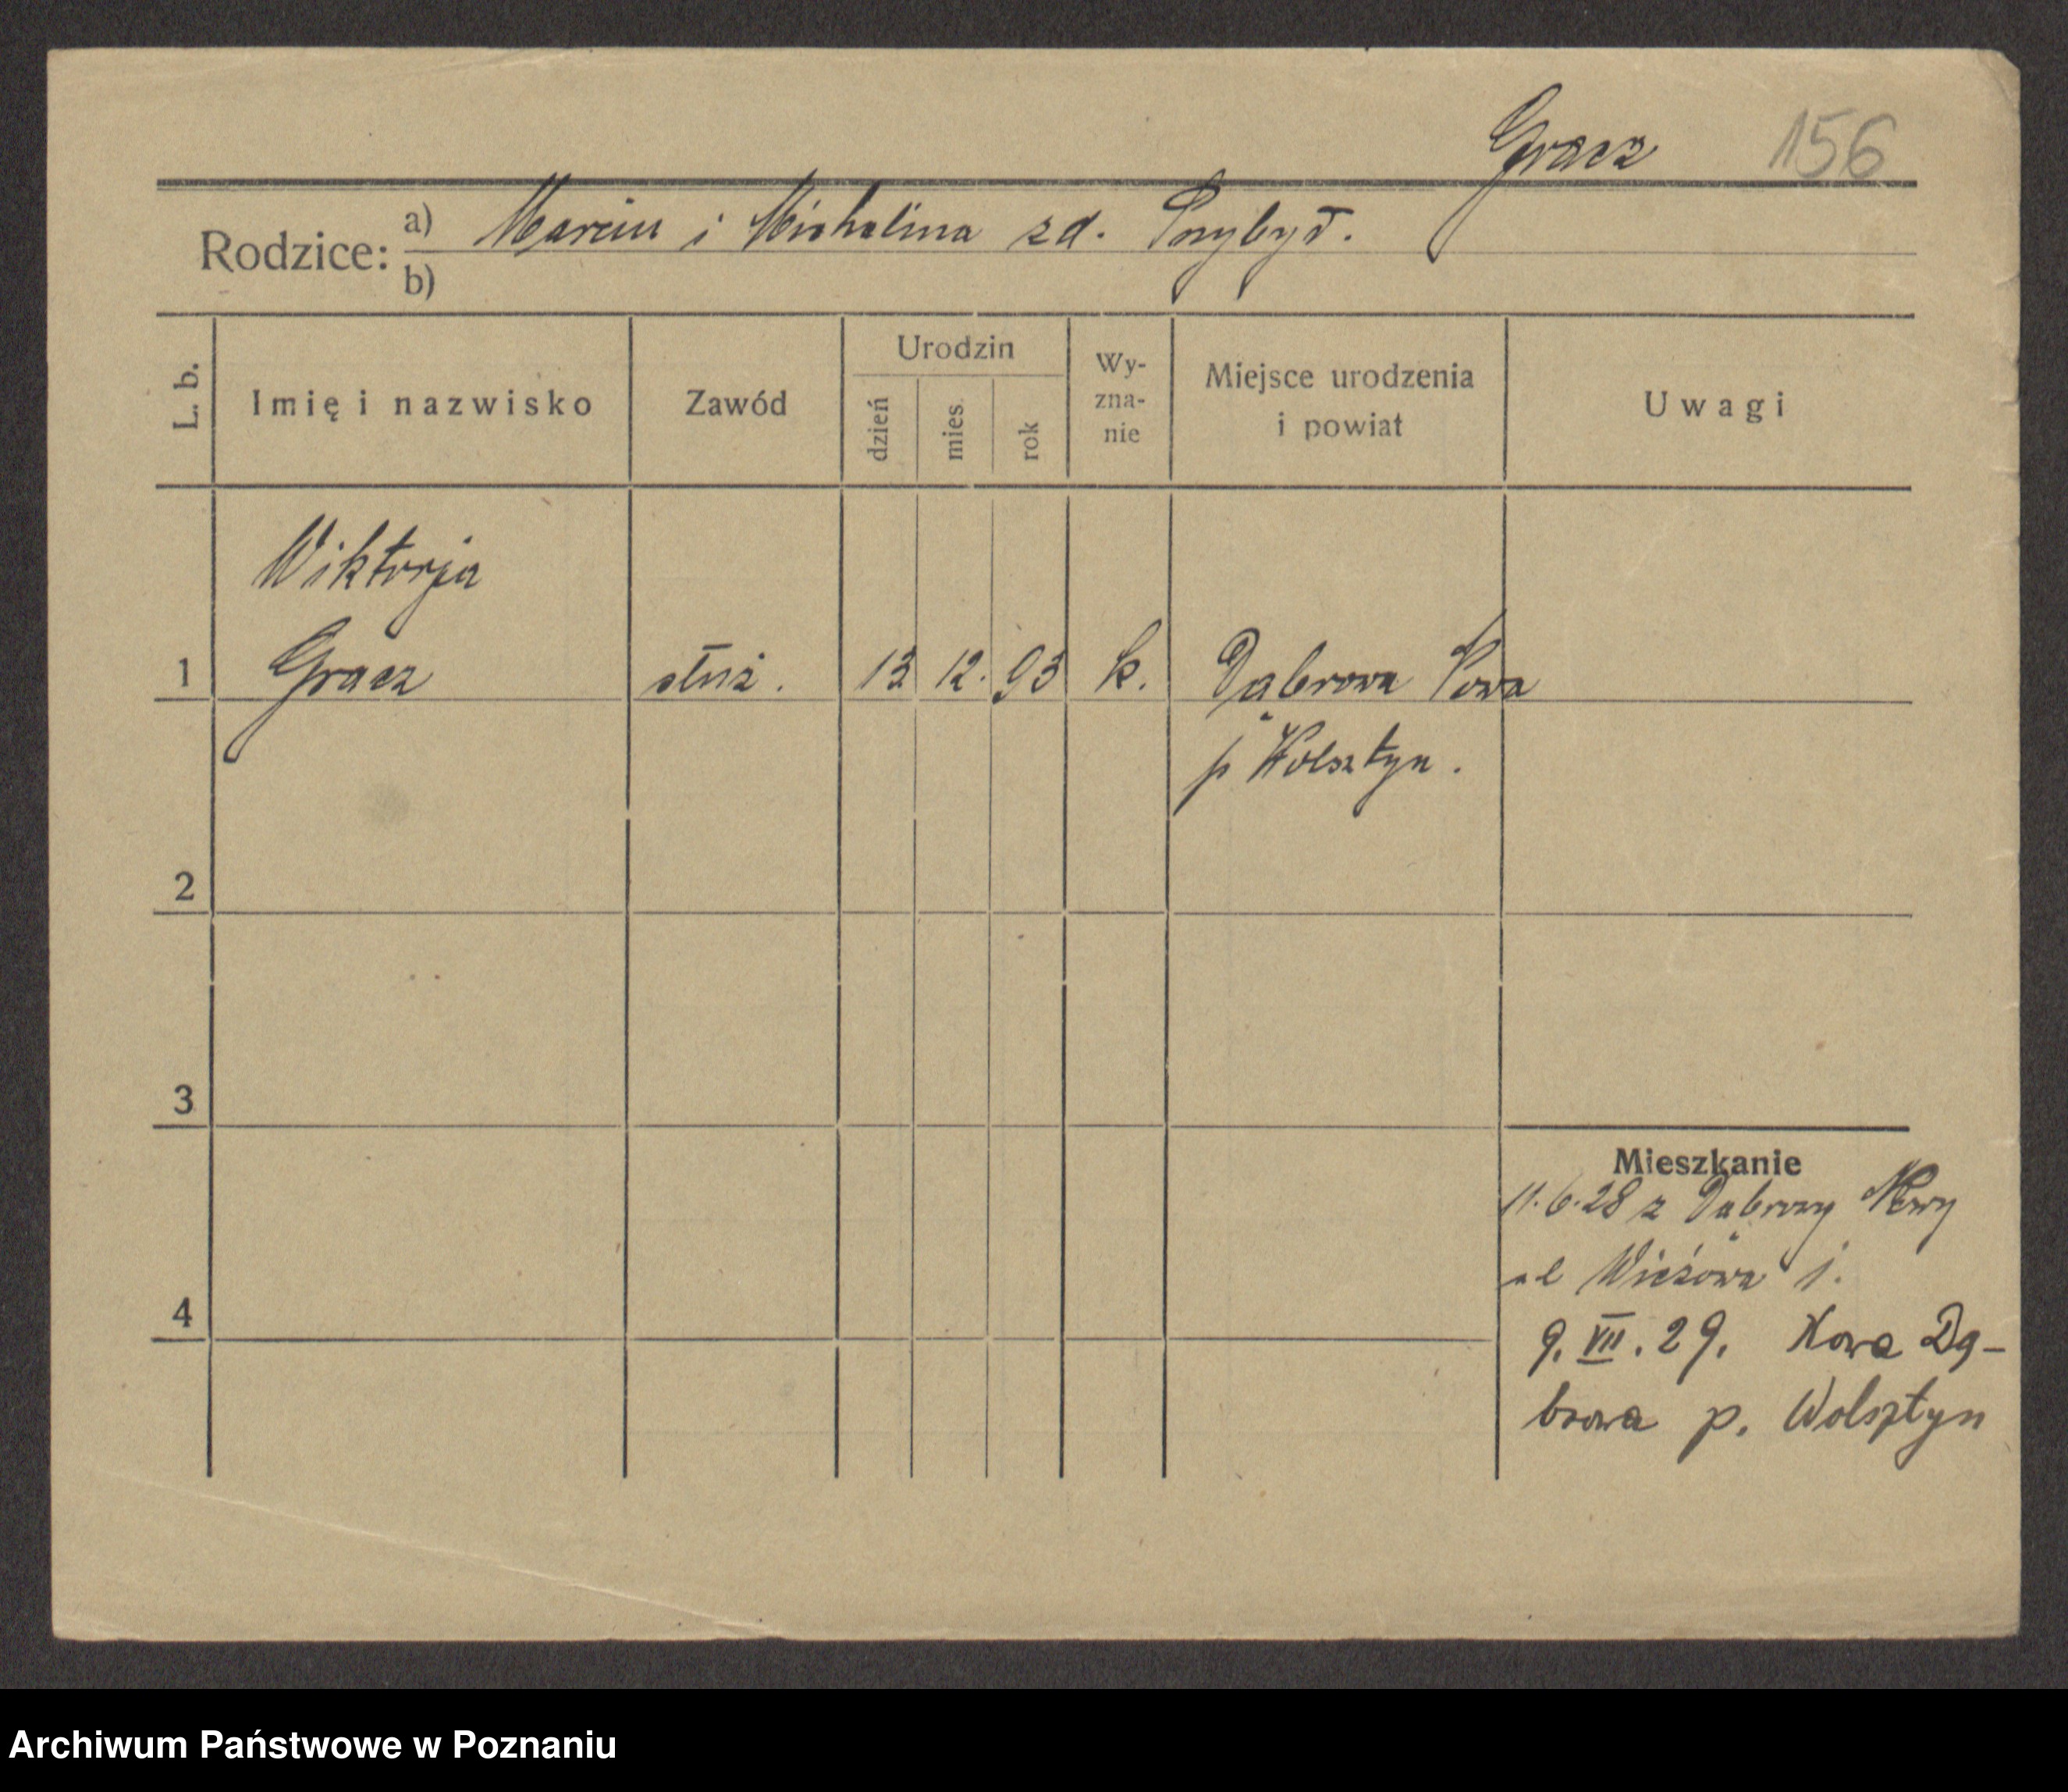 Gracz 156
Rodzice: a) Marcin i Michalina zd. Przybył.
b)
L. b. Imię i nazwisko Zawód Urodzin dzień mies. rok Wy-zna-nie Miejsce urodzenia i powiat Uwagi
Wiktorja
1 Gracz służ. 13 12. 93 k. Dąbrowa Nowa
p Wolsztyn.
2
3
Mieszkanie
11.6.28 z Dąbrowy Nowy
ul
4
9. VII. 29. Nowa Dą-
browa p. Wolsztyn
Archiwum Państwowe w Poznaniu